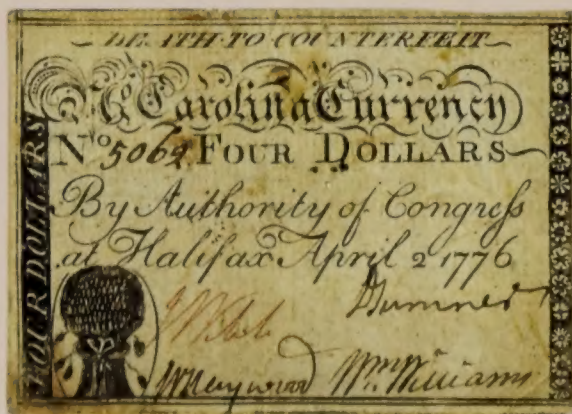 DEATH TO COUNTERFEIT
No. Carolina Currency
No 5064 FOUR DOLLARS
By Authority of Congress
at Halifax April 2 1776
FOUR DOLLARS
J Webb
D Sumner
W Haywood
Wm. Williams